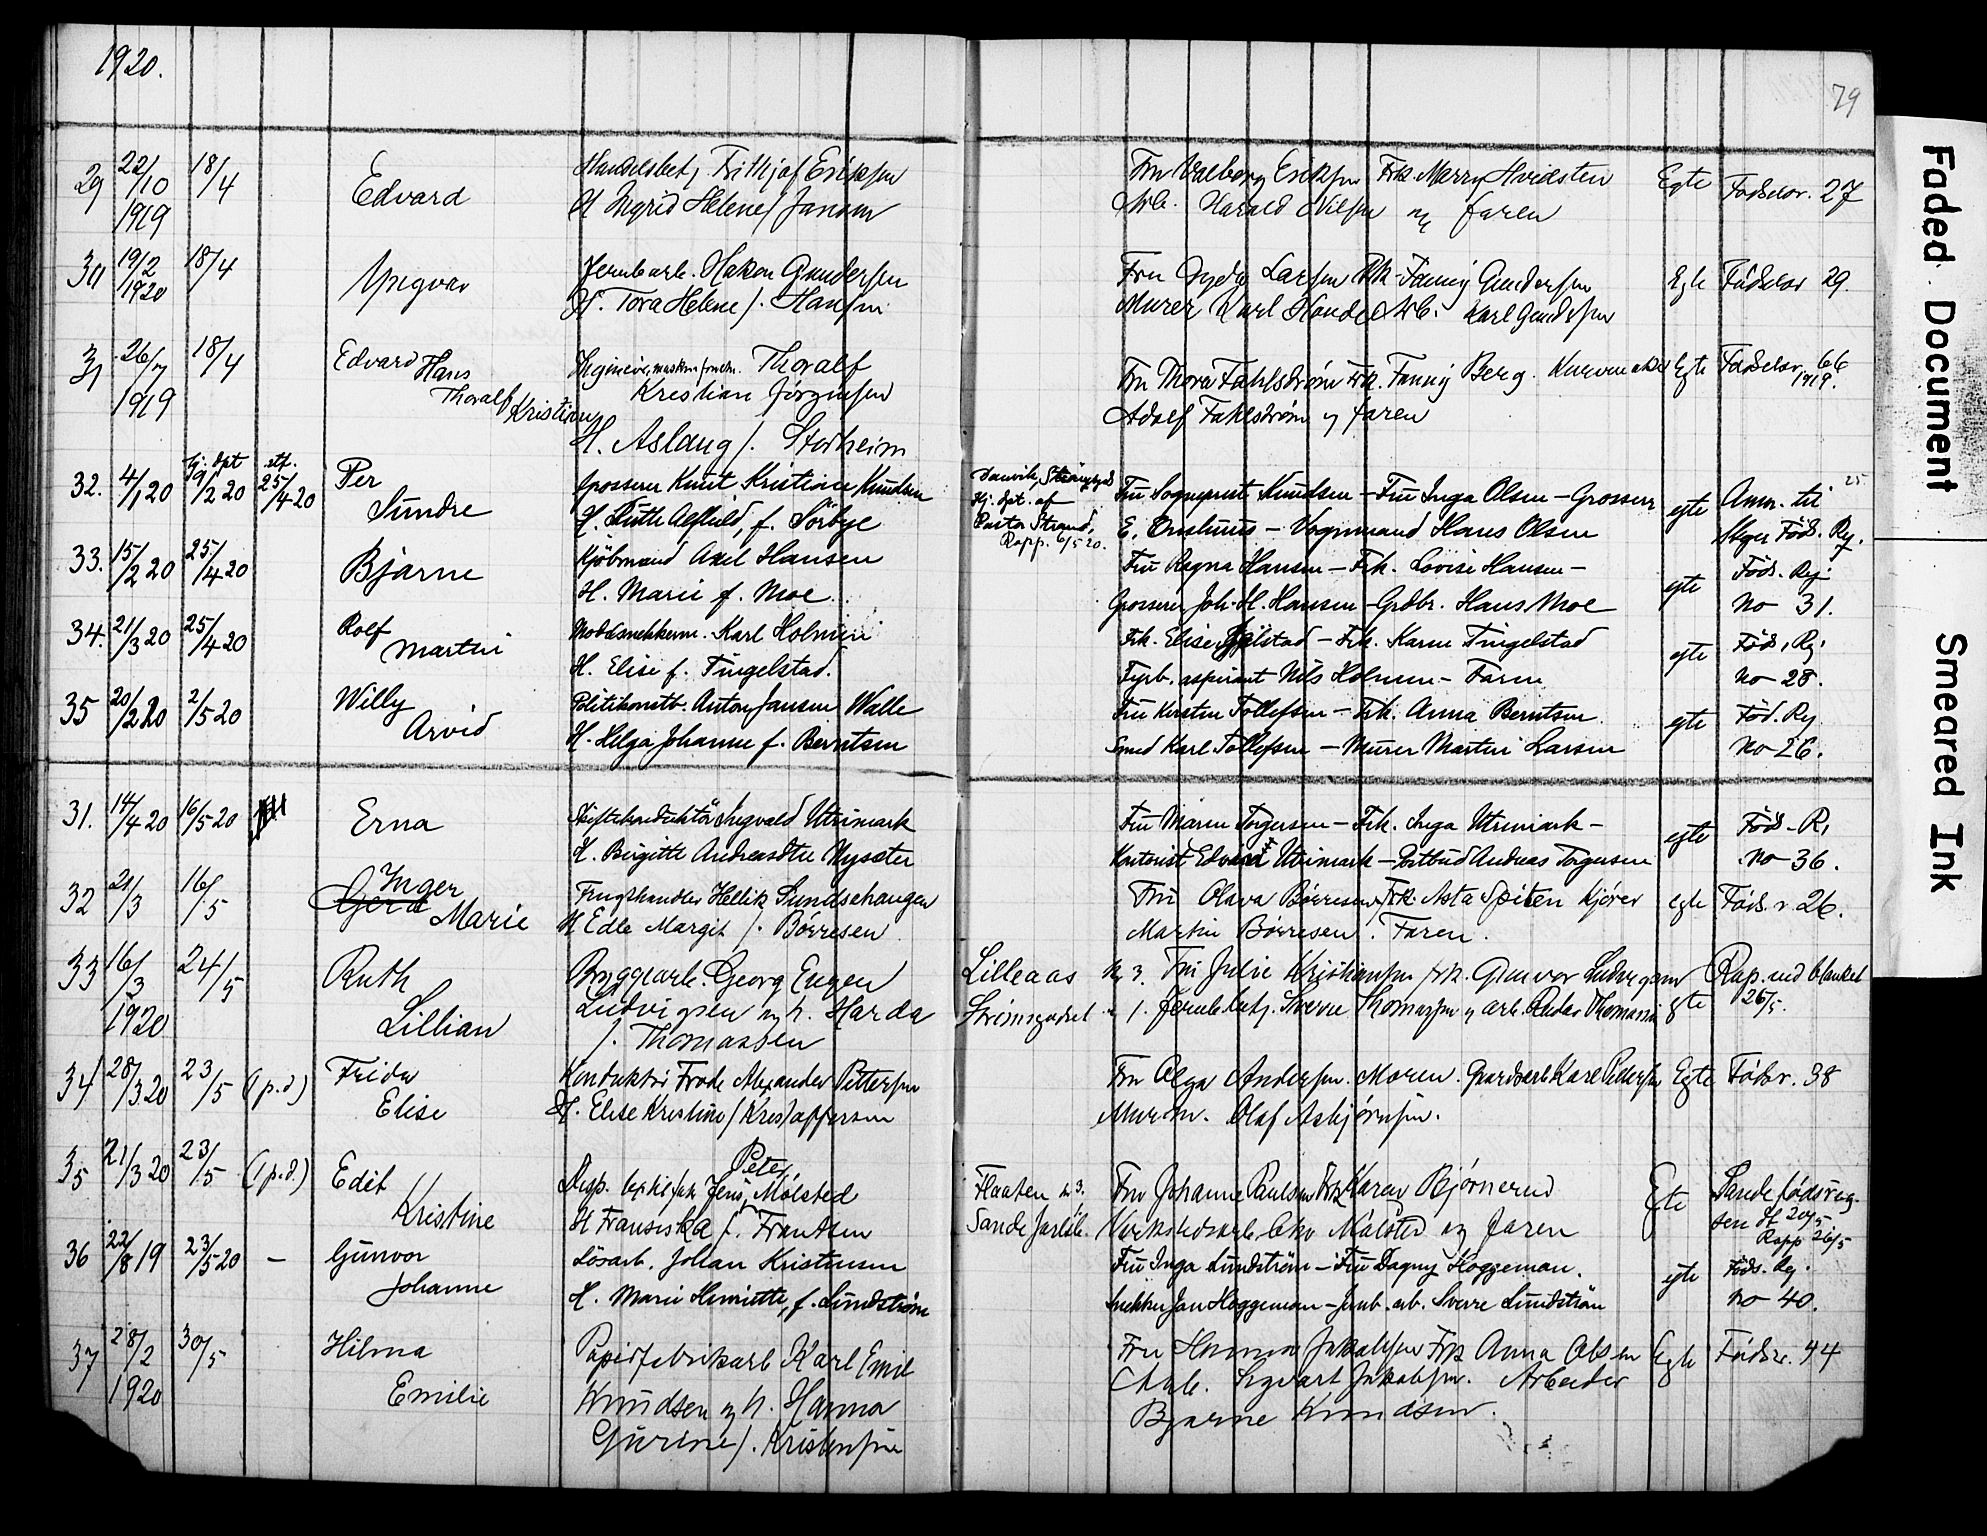 1920.
79
29 22/10 1919 18/4 Edvard Handelsbetj Frithjof Eriksen Fru Valborg Eriksen Frk. Marry Hvidsten Egte Fødselsr. 27
H Ingrid Helene f. Jansen Arb. Harald Nilsen og faren
30 19/2 1920 18/4 Yngvar Jernbarb. Hakon Gundersen Fru Gyda Larsen Frk. Fanny Gundersen Egte Fødselsr 29.
H. Tora Helene f. Hansen Murer Karl Arb. Karl Gundersen
31 26/7 1919 18/4 Edvard Hans Thoralf Kristian Thoralf Fru Thora Fahlstrøm Frk. Fanny Berg. Kurvmaker Egte Fødselsr. 66 1919.
Kristian Jörgensen Adolf Fahlstrøm og faren
H. Aslaug f. Storheim
32. 4/1 20 hj. dpt 9/2 20 stf. 25/4 20 Per Sundre Grosserer Knut Kristian Knudsen Danvik, Hj. dpt. af Pastor Strand, Rapp. 6/5 20. Fru Sogneprest Knudsen – Fru Inga Olsen – Grosserer egte Anm. til
H. Ruth Alfhild, f. Sörbye E. – Vognmand Hans Olsen Föds. Reg.
33. 15/2 20 25/4 20 Bjarne Kjöbmand Axel Hansen Fru Ragna Hansen – Frk. Lovise Hansen – egte Föds. Reg
H. Marie f. Moe. Grosserer Joh. H. Hansen – Grdbr. Hans Moe No 31.
34. 21/3 20 25/4 20 Rolf Martin Karl Holmen Frk. Elise – Frk. Karen Tingelstad egte Föds. Reg.
H. Elise f. Tingelstad. Fyrb. aspirant Nils Holmen – Faren No 28.
35 20/2 20 2/5 20 Willy Arvid Politikonstb. Anton Jansen Walle Fru Kirsten Tollefsen – Frk. Anna Berntsen. egte Föd. Reg
H. Helga Johanne f. Berntsen Smed Karl Tollefsen – Murer Martin Larsen No 26.
31. 14/4 20 16/5 20 Erna Ingvald Utrimark Fru Maren Torgersen – Frk. Inga Utrimark – egte Föds. R.
H. Birgitte Andreasdtr Nysæter Kontorist Edvard Utrimark – Postbud Andreas Torgersen No 36.
32 21/3 16/5 Inger Gerd Marie Frugthandler Hellik Sundsehaugen Fru Olava Børresen, Frk. Asta Spiten Kjører egte Föds. r. 26.
H Edle Margit f. Børresen Martin Børresen. Faren.
33 16/3 1920 24/5 Ruth Lillian Bryggearb. Georg Eugen Lilleaas N 3. Fru Julie Kristiansen Frk. Gunvor Ludvigsen Rap. med blanket
Ludvigsen og h. Harda Strömsgodset 1. Jernb. betj. Sverre Thomassen og arb. Thomassen egte 26/5.
f. Thomassen
34 28/3 20 23/5 (p.d) Frida Elise Konduktør Frode Alexander Pettersen Fru Olga Andersen. Moren. Gaardsarb Karl Pettersen Egte Födsr. 38
H. Elise Kristine f Kristoffersen Murerm. Olaf Asbjørnsen.
35 21/3 20 23/5 (p.d) Edit Kristine Jens Peter Mølsted Flaaten Fru Johanne Paulsen Frk Karen Bjørnerud Egte Sande fødsreg.
H Fransiska f. Frantsen Sande Jarlsb. Verkstedsarb. Mølsted og faren 20/5 Rapp 26/5
36 22/8 19 23/5 20 – Gunvor Johanne Lösarb. Johan Kristensen Fru Inga Lundström – Fru Dagny Hoggeman. egte Föds. Reg.
H. Marie Henriette, f. Lundström Snekker Jan Hoggeman – Jernb. arb. Sverre Lundström No 40.
37 28/2 1920 30/5 Hilma Emilie Papirfabrikarb Karl Emil Fru Hanna Jakobsen Frk Anna Olsen Egte Födsr. 44
Knudsen og h. Hanna Arb. Sigvart Jakobsen. Arbeider
Gurine f. Kristensen Bjarne Knudsen.
Faded Document
Smeared Ink